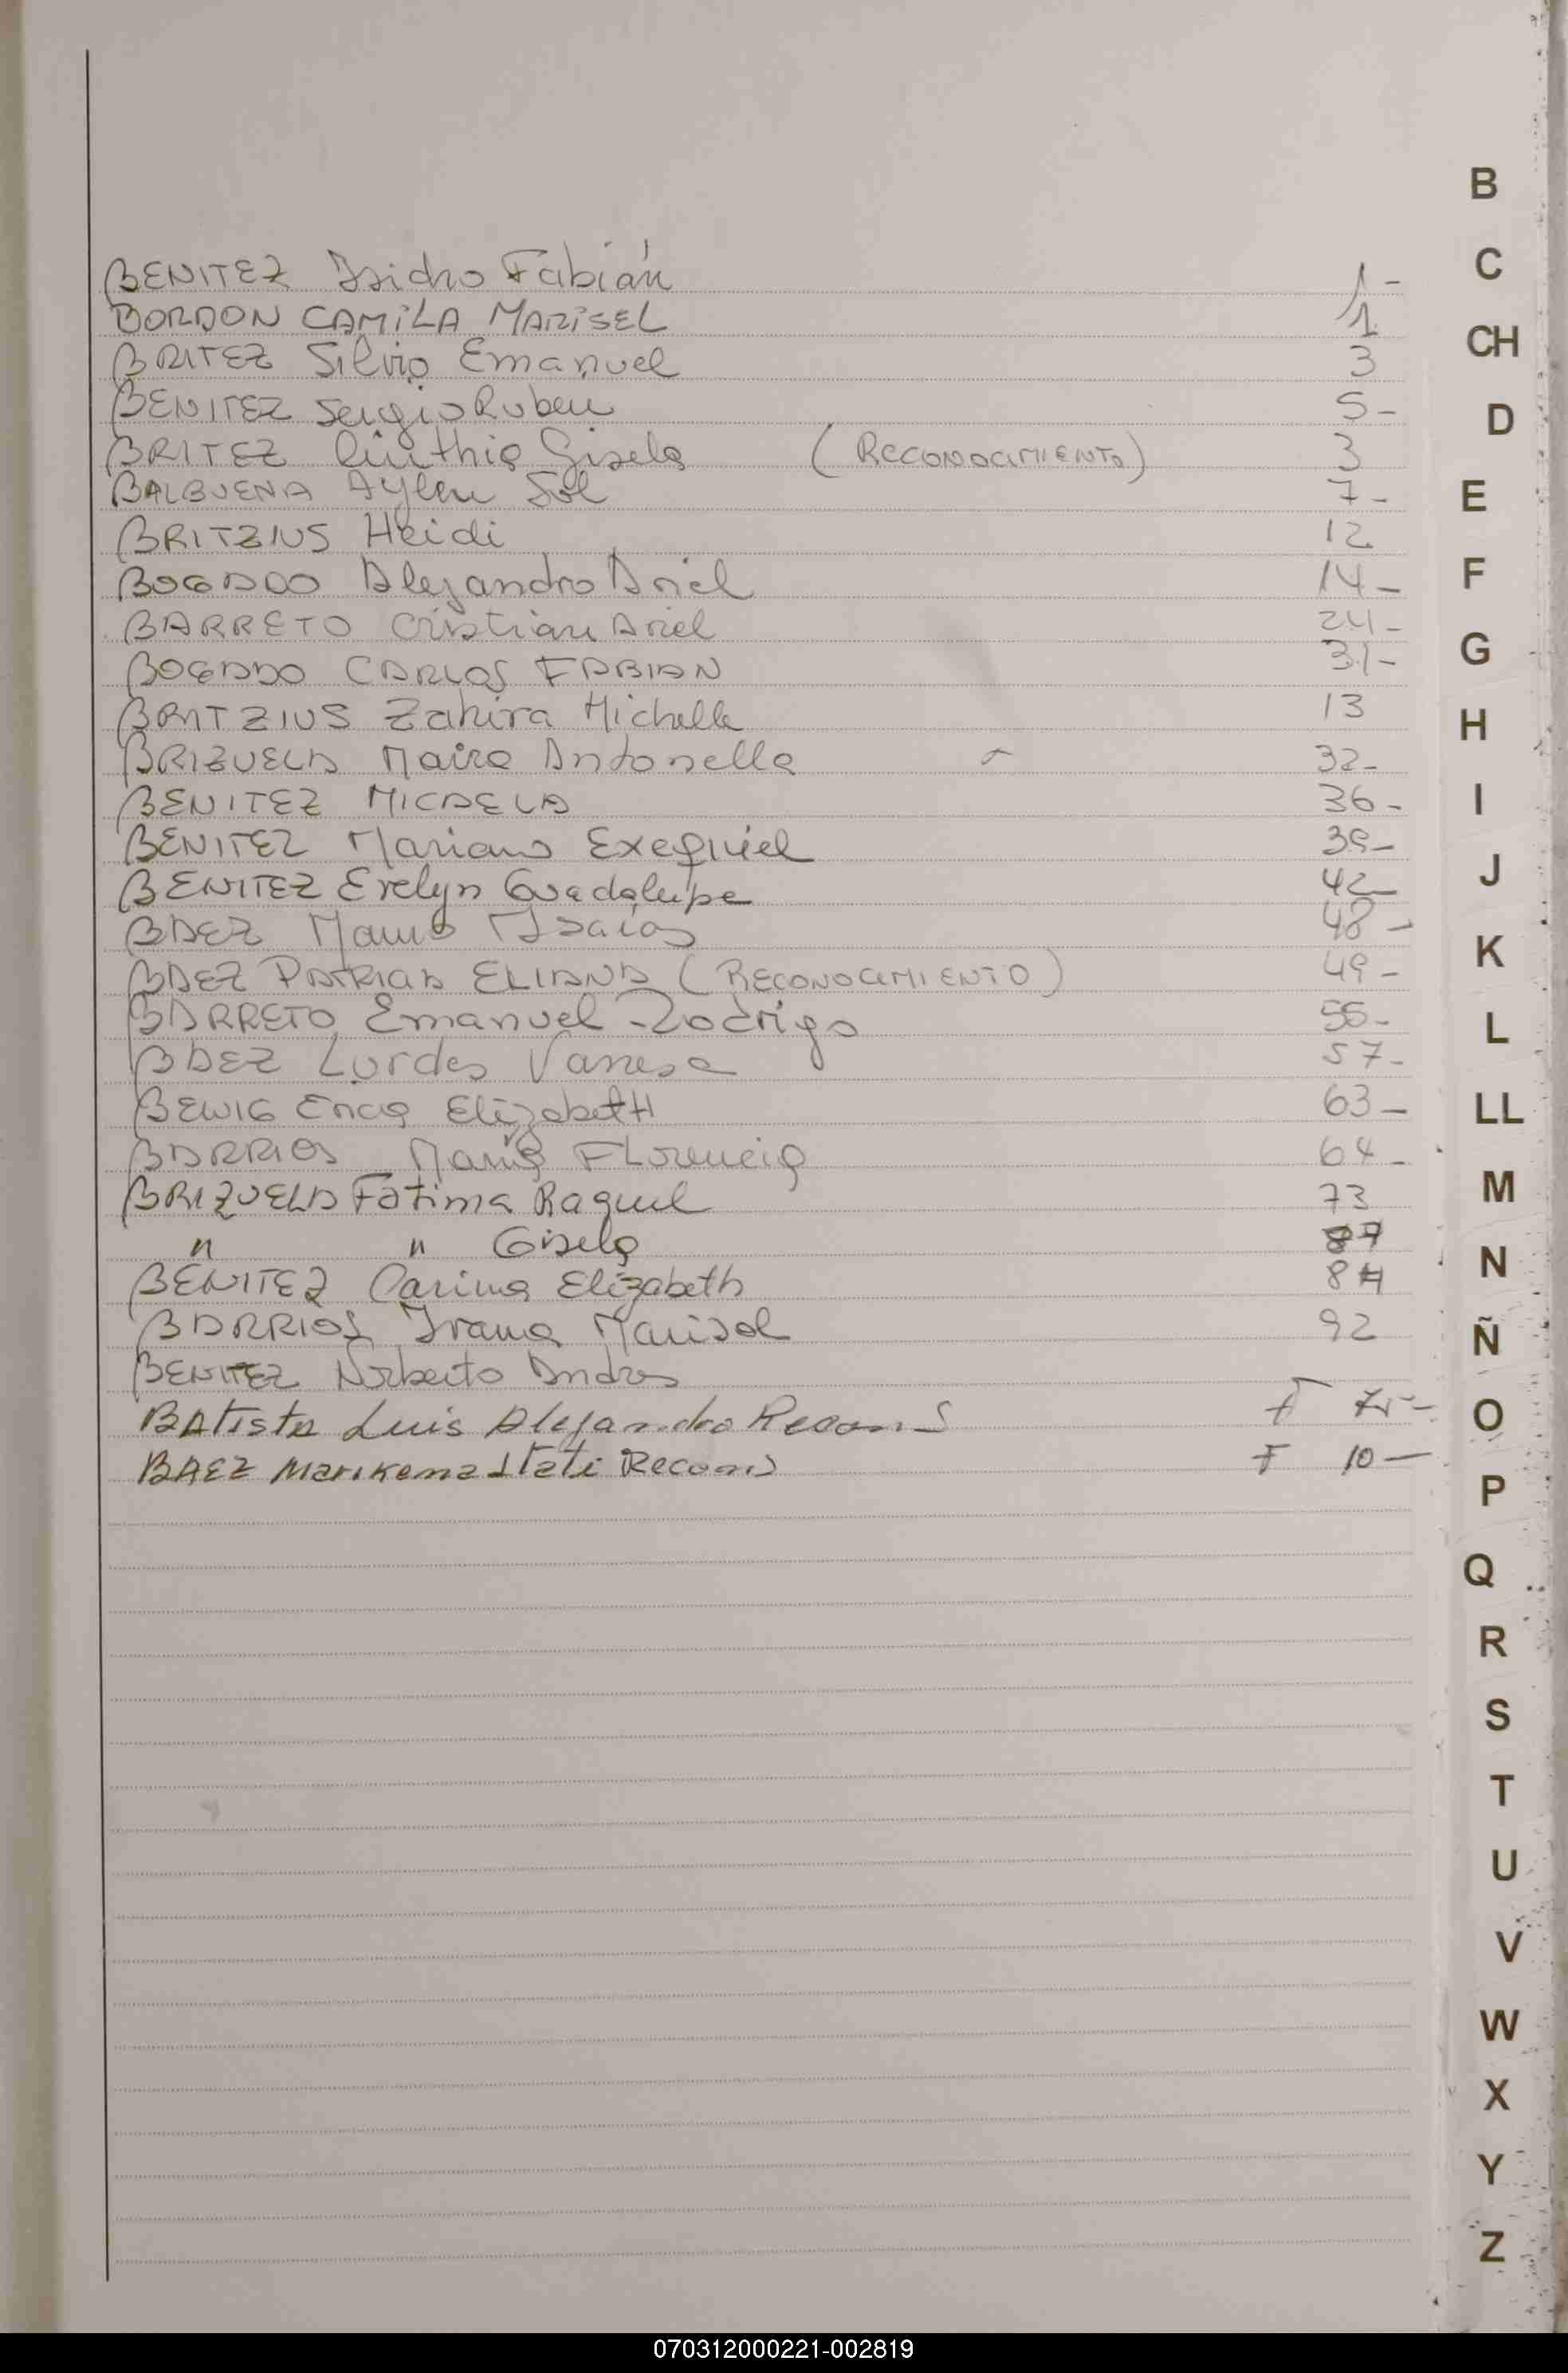 BENITEZ Isidro Fabián 1-
BORDON CAMILA MARISEL 1
BRITEZ Silvio Emanuel 3
BENITEZ Sergio Ruben 5-
BRITEZ Cinthia Gisela (RECONOCIMIENTO) 3
BALBUENA Aylen Sol 7-
BRITZIUS Heidi 12
BOGADO Alejandro Ariel 14-
BARRETO Cristian Ariel 24-
BOGADO CARLOS FABIAN 31-
BRITZIUS Zahira Michelle 13
BRIZUELA Maira Antonella 32-
BENITEZ MICAELA 36-
BENITEZ Mariano Exequiel 39-
BENITEZ Evelyn Guadalupe 42-
BAEZ Mauro Isaias 48-
BAEZ PATRICIA ELIANA (RECONOCIMIENTO) 49-
BARRETO Emanuel Rodrigo 55-
BAEZ Lurdes Vanesa 57-
BEWIG Erica Elizabeth 63-
BARRIOS Maria Florencia 64-
BRIZUELA Fatima Raquel 73
" " Gisela
BENITEZ Carina Elizabeth 84
BARRIOS Ivana Marisol 92
BENITEZ Norberto Andres
BAtista Luis Alejandro Recons F
BAEZ Marikena Itati Recons F 10-
B
C
CH
D
E
F
G
H
I
J
K
L
LL
M
N
Ñ
O
P
Q
R
S
T
U
V
W
X
Y
Z
070312000221-002819